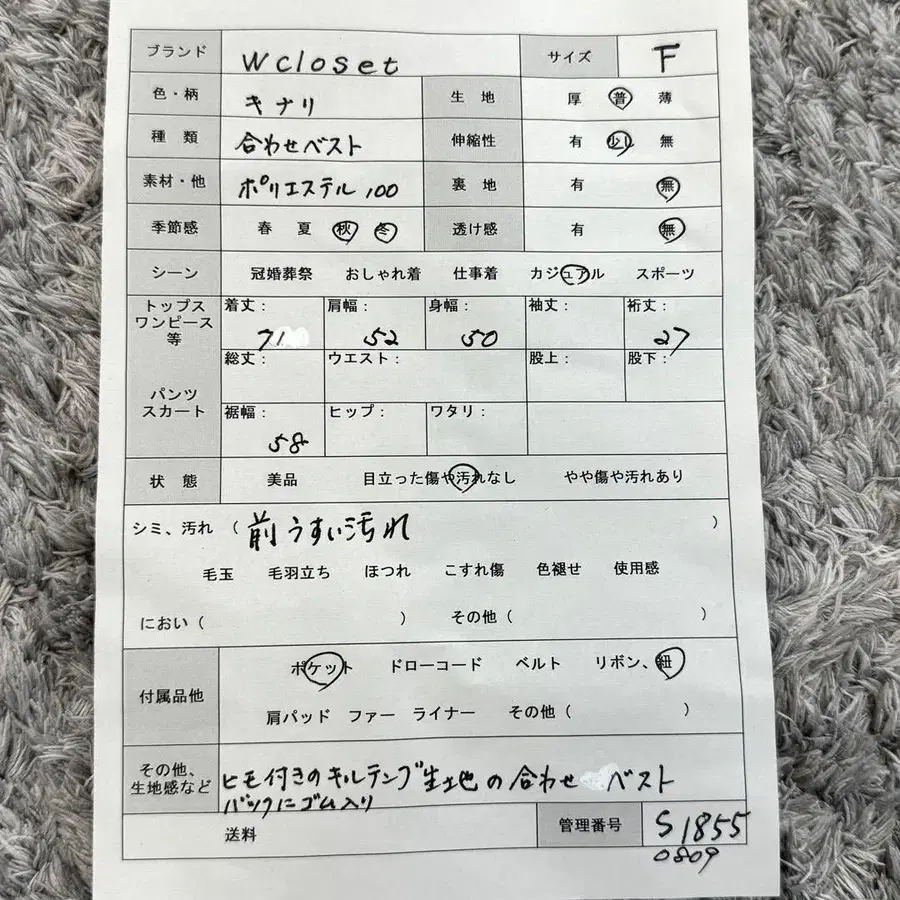 ブランド w closet サイズ F
色・柄 キナリ 生 地 厚 普 薄
種 類 合わせベスト 伸縮性 有 少し 無
素材・他 ポリエステル 100 裏 地 有 無
季節感 春 夏 秋 冬 透け感 有 無
シーン 冠婚葬祭 おしゃれ着 仕事着 カジュアル スポーツ
トップス ワンピース 等 着丈： 71 肩幅： 52 身幅： 50 袖丈： 裄丈： 27
パンツ スカート 総丈： ウエスト： 股上： 股下：
裾幅： 58 ヒップ： ワタリ：
状 態 美品 目立った傷や汚れなし やや傷や汚れあり
シミ、汚れ （ 前 うすい汚れ ）
毛玉 毛羽立ち ほつれ こすれ傷 色褪せ 使用感
におい（ ） その他（ ）
付属品他 ポケット ドローコード ベルト リボン、紐
肩パッド ファー ライナー その他（ ）
その他、 生地感など ヒモ付きのキルテング生地の合わせ ベスト
バックにゴム入り
送料 管理番号 S1855
0809